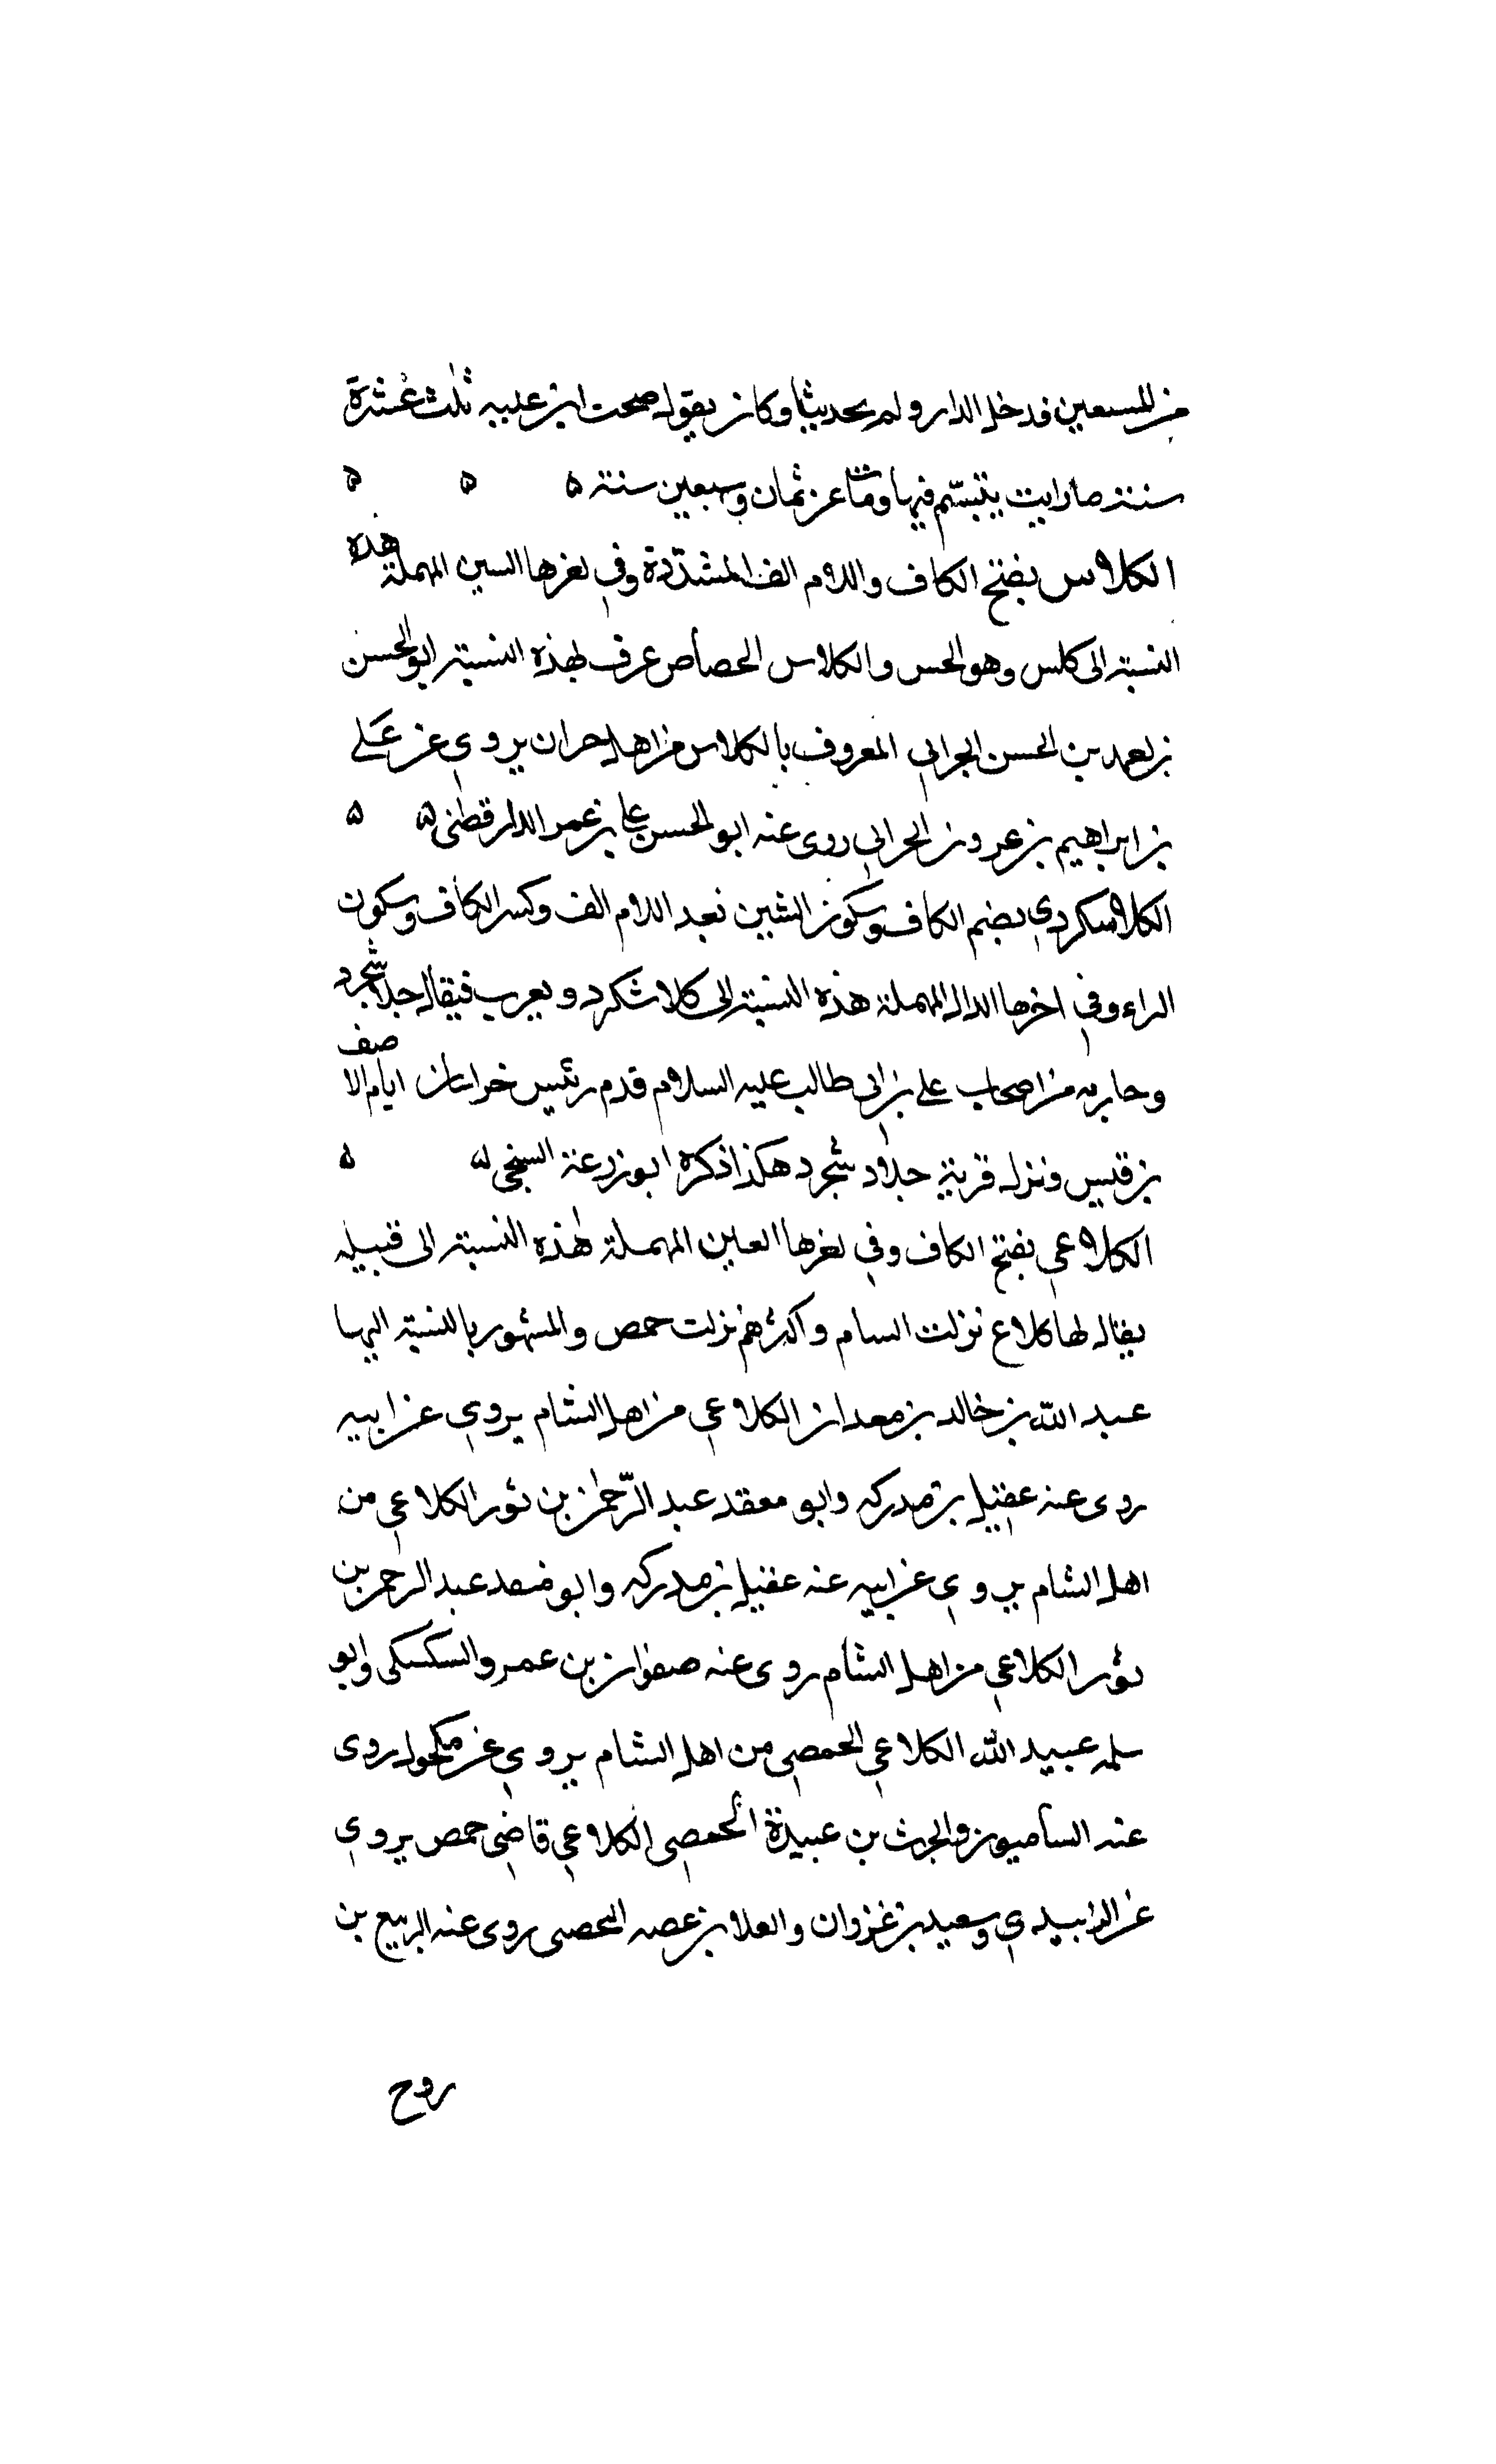 من المسمعين فدخل الدار ولم يحدثنا وكان يقول صحبت ابن علية ثلث عشرة
سنة ما رايت يتبسّم فيها ومات عن ثمان وسبعين سنة ه ه ه
الكلاس بفتح الكاف واللام الف المشدّدة وفي اخرها السين المهملة هذه
النسبة الى كلس وهو الجس والكلاس الجصاص عرف بهذه النسبة ابو الحسن
بن الحسن الحراني المعروف بالكلاس من اهل حران يروي عن علي
بن ابراهيم بن عزون الحراني روى عنه ابو الحسن علي بن عمر الدارقطنى ه ه
الكلاشكردي بضم الكاف وسكون الشين بعد اللام الف وكسر الكاف وسكون
الراء وفي اخرها الدال المهملة هذه النسبة الى كلاشكرد ويعرب فيقال جلاشجرد
من اصحاب علي بن ابي طالب عليه السلام قدم رئيس خراسان ايام الاحنف
بن قيس ونزل قرية جلاد شجرد هكذا ذكره ابو زرعة السنجي ه ه
الكلاعي بفتح الكاف وفي اخرها العين المهملة هذه النسبة الى قبيله
يقال لها كلاع نزلت السام واكثرهم نزلت حمص والمشهور بالنسبة اليها
عبد الله بن خالد بن معدان الكلاعي من اهل الشام يروي عن ابيه
روى عنه عقيل بن مدركه وابو معقد عبد الرّحمٰن بن ثور الكلاعي من
اهل الشام يروي عن ابيه عنه عقيل بن مدركه وابو عبد الرحمن بن
ثور الكلاعي من اهل الشام روى عنه صفوان بن عمرو السكسكى وابو
سلمه عبيد الله الكلاعي الحمصي من اهل الشام يروي عن مكحول روى
عنه الساميون والحرث بن عبيدة الحمصي الكلاعي قاضي حمص يروي
عن الزبيدي وسعيد بن غزوان والعلا بن الحمصى روى عنه الربيع بن
روح